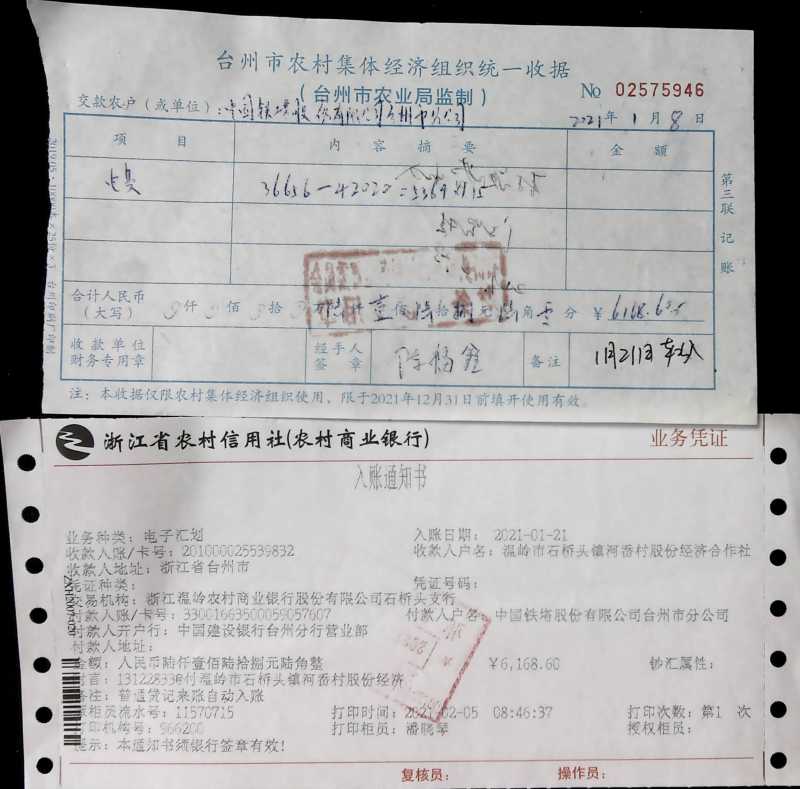 台州市农村集体经济组织统一收据
(台州市农业局监制)
No 02575946
交款农户(或单位):中国铁塔股份有限公司台州市分公司
2021年1月8日
项目 内容摘要 金额
电费 36656-42020=5364
第三联 记账
合计人民币(大写) 仟 佰 拾 仟壹佰陆拾捌元陆角零分 ¥6168.60
收款单位财务专用章
经手人签章
备注 1月21日
注:本收据仅限农村集体经济组织使用,限于2021年12月31日前填开使用有效。
浙江省农村信用社(农村商业银行) 业务凭证
入账通知书
业务种类:电子汇划 入账日期: 2021-01-21
收款人账/卡号:201000025539832 收款人户名:温岭市石桥头镇河岙村股份经济合作社
收款人地址:浙江省台州市
凭证种类: 凭证号码:
交易机构:浙江温岭农村商业银行股份有限公司石桥头支行
付款人账/卡号:33001663500059057607 付款人户名:中国铁塔股份有限公司台州市分公司
付款人开户行:中国建设银行台州分行营业部
付款人地址:
金额:人民币陆仟壹佰陆拾捌元陆角整 ¥6,168.60 钞汇属性:
附言:131228330付温岭市石桥头镇河岙村股份经济
备注:普通贷记来账自动入账
柜员流水号:11570715 打印时间:2021-02-05 08:46:37 打印次数:第1 次
打印机构号:966200 打印柜员:潘晓琴 授权柜员:
提示:本通知书须银行签章有效!
复核员: 操作员: